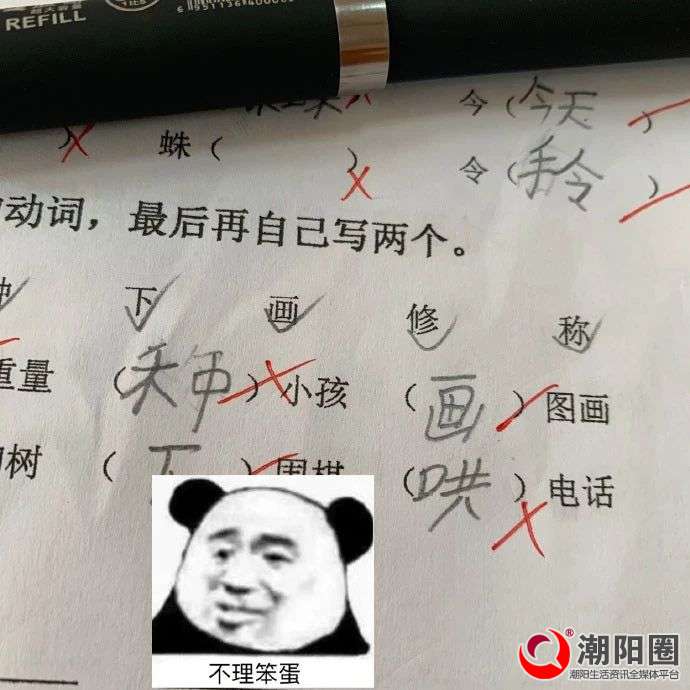 REFILL
今（今天）
蛛（ ）
令（）
动词，最后再自己写两个。
下 画 修 称
重量 （ ）小孩 （画）图画
树 （下）围棋 （哄）电话
不理笨蛋
潮阳圈®
潮阳生活资讯全媒体平台